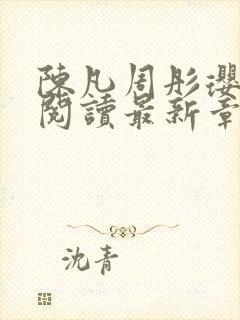 陳凡周彤瓔
閱讀最新章
沈青